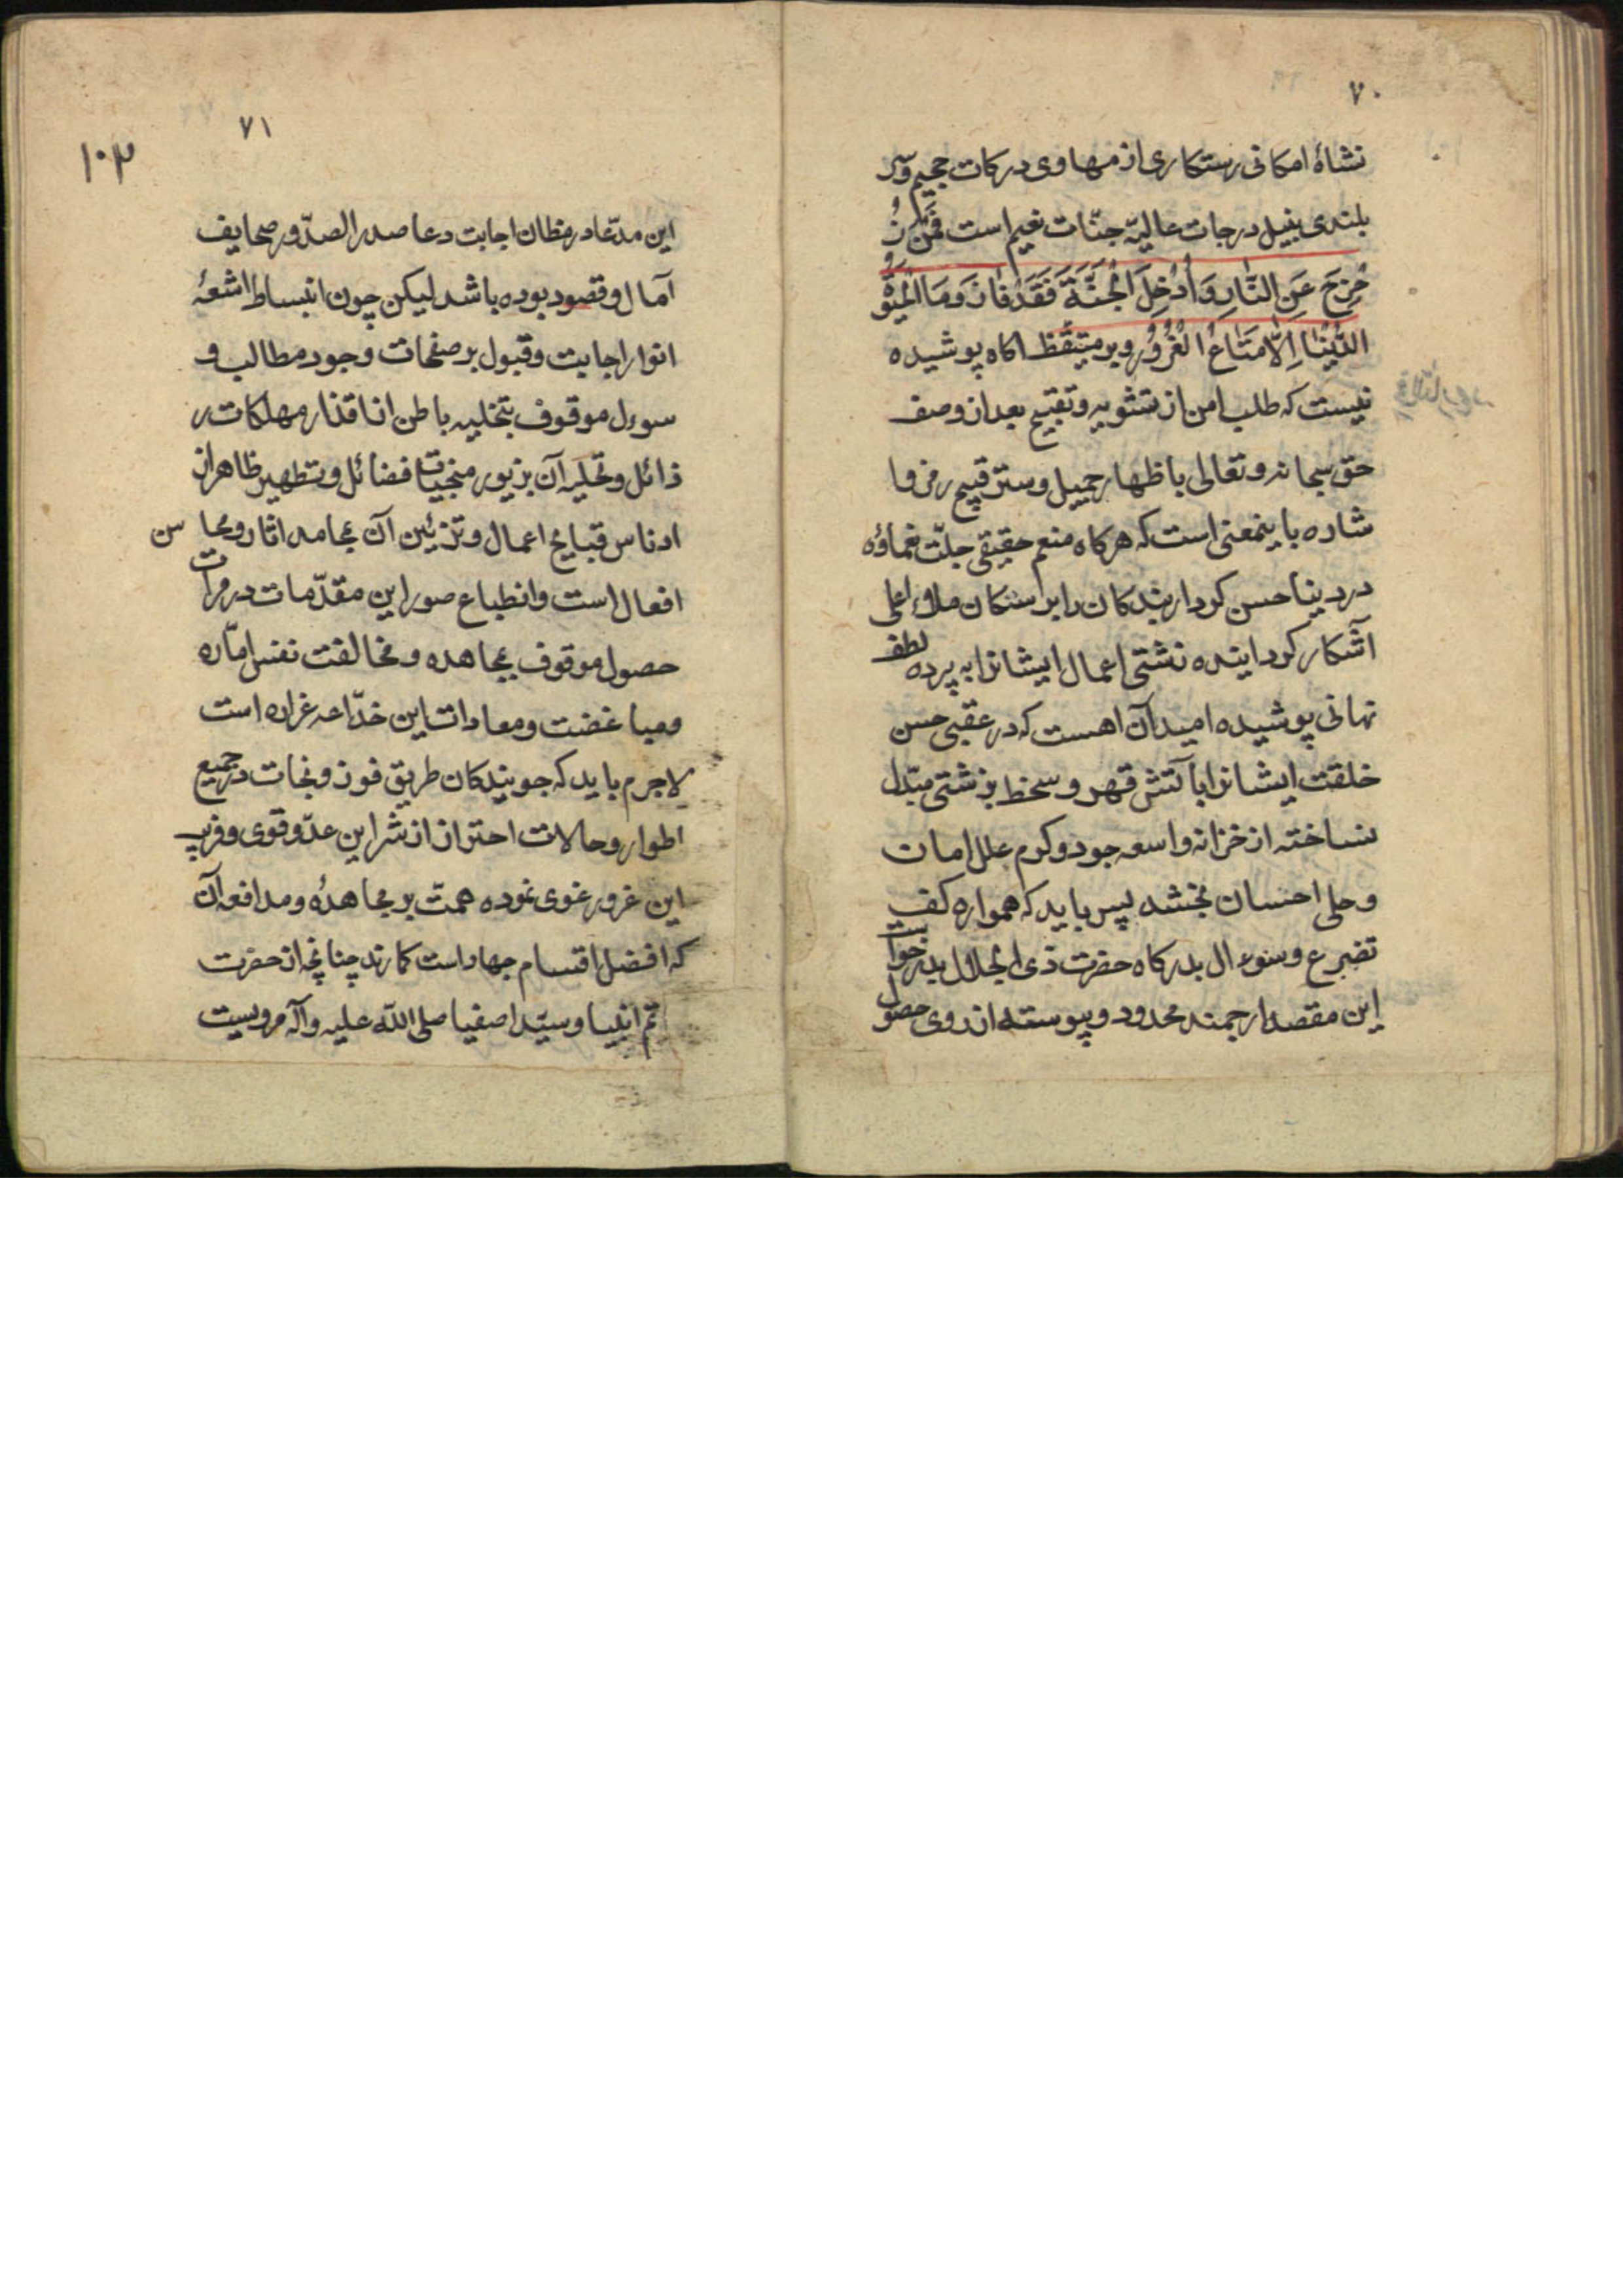 ٧٠
نشاهٔ امکانی رستکاری از مهاوی درکات جحیم و سر
بلندی بنیل درجات عالیهٔ جنّات نعیم است فَمَن زُ
حْزِحَ عَنِ النّٰارِ وَ اُدْخِلَ الْجَنَّةَ فَقَدْ فٰازَ وَ مَا الْحَیٰوةُ
الدُّنْیٰا اِلّٰا مَتٰاعُ الْغُرُوُرِ و بر متیقّظ اکاه پوشیده
نیست که طلب امن از تشویه و تقبیح بعد از وصف
حق سبحانه و تعالی باظهار جمیل و ستر قبیح رمز و ا
شاره باینمعنی است که هرکاه منعم حقیقی جلّت نعماؤه
در دینا حسن کردار بندکان را بر اسنکان ملاء اعلی
اشکار کردانیده زشتی اعمال ایشانرا به پرده لطف
نهانی پوشیده امید آن اهست که در عقبی حسن
خلقت ایشانرا بآتش قهر و سخط بزشتی مبّدل
نساخته از خزانه واسعه جود و کرم علل امان
و حلی احسان بخشد پس باید که همواره کف
تضرع و سنوءال بدرکاه حضرت ذی الجلال بدرخواست
این مقصد ارجمند محدود و پیوسته از روی حصول
٧١
١٠٢
این مدّعا در مظان اجابت دعا صدر الصدّور صحایف
آمال و قصود بوده باشد لیکن چون انبساط اشعهٔ
انوار اجابت و قبول بر صفحات وجود مطالب و
سوءل موقوف بتخلیه باطن از اقذار مهلکات ر
ذائل و تحلیه آن بزیور منجیات فضائل و تطهیر ظاهر از
ادناس قبایح اعمال و تزئین آن بمحامد اثار و محاسن
افعال است و انطباع صور این مقدّمات در مرات
حصول موقوف بمجاهده و مخالفت نفس امّاره
و مباغضت و معادات این خدّاعه غراره است
لاجرم باید که جویندکان طریق فوز و نجات در جمیع
اطوار و حالات احتراز از شر این عدّو قوی و فریب
این غرور غوی نموده همت بر مجاهدهٔ و مدافعه آن
که افضل اقسام جهاد است کمارند چنانچه از حضرت
انبیا و سیّد اصفیا صلی اللّه علیه و آله مرویست